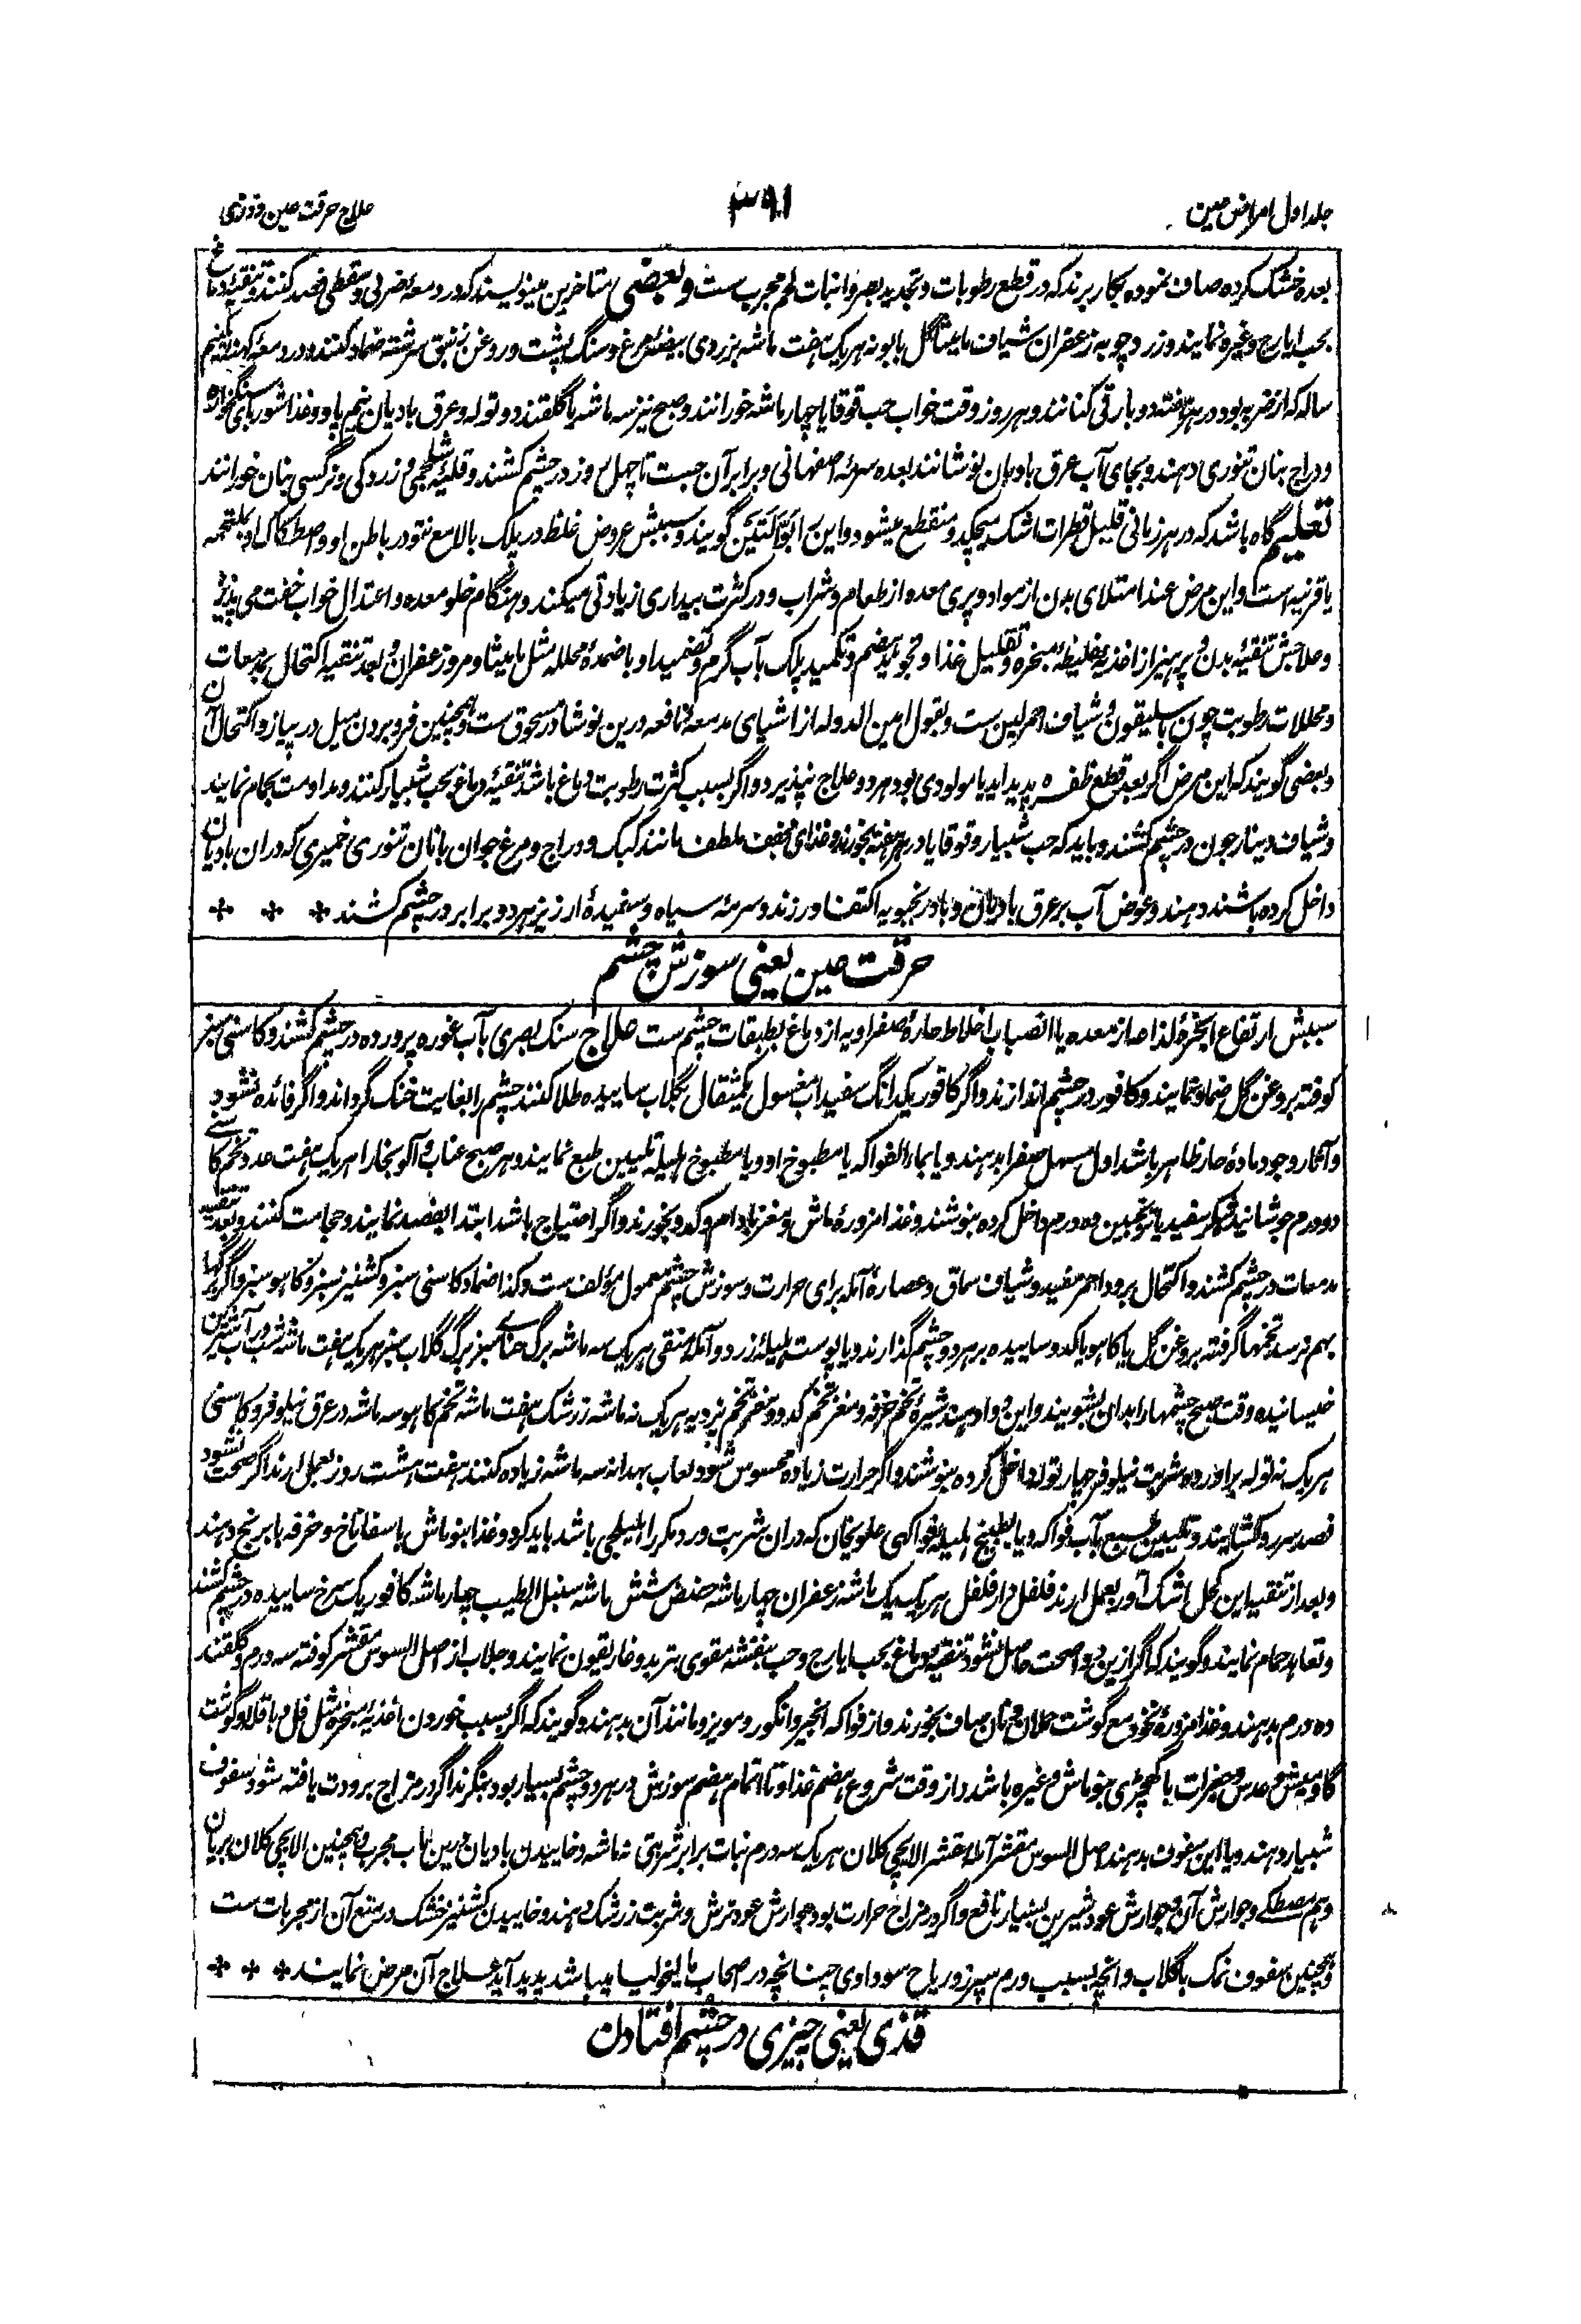 جلد اول امراض عین
۳۹۱
علاج حرقت عین و قذی
بعده خشک کرده صاف نموده بکار برند که در قطع رطوبات و تجدید بصر و انبات لحم مجرب ست و بعضی متاخرین مینویسند که در دمعهٔ ضربی و سقطی فصد کنند و تنقیهٔ دماغ
بحب ایارج و غیره نمایند و زرد چوبه زعفران شیاف مامیثا گل بابونه هر یک هفت ماشه بزردی بیضهٔ مرغ و سنگ پشت و روغن زنبق سرشته ضماد کنند و در دمعهٔ کهنه
ساله که از ضربه بود در هر هفته دو بار قی کنانند و هر روز وقت خواب حب قوقایا چهار ماشه خورانند و صبح نیز سه ماشه با گلقند دو توله و عرق بادیان نیم پاو و غذا شوربای
و دراج بنان تنوری دهند و بجای آب عرق بادیان نوشانند بعده سرمهٔ اصفهانی و برابر آن جست تا چهل روز در چشم کشند و قلیهٔ شلجمی و زردکی و نرگسی بنان خورانند
تعلیم گاه باشد که در هر زمانی قلیل قطرات اشک میچکد و منقطع میشود و این را گویند و سببش عروض غلظ در پلک بالا مع نتو در باطن او و اصطکاک او بملتحمه
یا قرنیه است و این مرض عند امتلای بدن از مواد و پری معده از طعام و شراب و در کثرت بیداری زیادتی میکند و هنگام خلو معده و اعتدال خواب خفت می پذیرد
و علاجش تنقیهٔ بدن و پرهیز از اغذیهٔ غلیظهٔ مبخره و تقلیل غذا و تجوید هضم و تکمید پلک بآب گرم و تضمید او باضمدهٔ محلله مثل مامیثا و مر و زعفران و بعد تنقیه اکتحال بمدمعات
و محللات رطوبت چون باسلیقون و شیاف احمر لین ست و بقول امین الدوله از اشیای مدمعهٔ نافعه درین نوشادر مسحوق ست و همچنین فرو بردن میل در پیاز و اکتحال آن
و بعضی گویند که این مرض اگر بعد قطع ظفره پدید آید یا مولودی بود هر دو علاج نپذیرد و اگر بسبب کثرت رطوبت دماغ باشد تنقیهٔ دماغ بحب شبیار کنند و مداومت بحمام نمایند
و شیاف دینارجون در چشم کشند و باید که حب شبیار و قوقایا در هر هفته بخورند و غذای مخفف ملطف مانند کبک و دراج و مرغ جوان با نان تنوری خمیری که دران بادیان
داخل کرده باشند دهند و عوض آب بر عرق بادیان و بادرنجبویه اکتفا ورزند و سرمهٔ سیاه و سفیدهٔ ارزیز هر دو برابر در چشم کشند
حرقت عین یعنی سوزش چشم
سببش ارتفاع ابخرهٔ لذاعه از معده یا انصباب اخلاط حارهٔ صفراویه از دماغ بطبقات چشم ست علاج سنگ بصری بآب غوره پرورده در چشم کشند و کاسنی سبز
کوفته بروغن گل ضماد نمایند و کافور در چشم اندازند و اگر کافور یکدانگ سفیداب مغسول یکمثقال بگلاب ساییده طلا کنند چشم را بغایت خنک گرداند و اگر فائده نشود
و آثار وجود مادهٔ حار ظاهر باشد اول مسهل صفرا بدهند و یا بماء الفواکه یا مطبوخ او و یا مطبوخ هلیله تلیین طبع نمایند و هر صبح عناب و آلو بخارا هر یک هفت عدد تخم کاسنی
دو درم جوشانیده شکر سفید یا ترنجبین ده درم داخل کرده بنوشند و غذا مزورهٔ ماش و مغز بادام و کدو بخورند و اگر احتیاج باشد ابتدا بفصد نمایند و حجامت کنند و بعد تنقیه
مدمعات در چشم کشند و اکتحال برود احمر مفید و شیاف سماق و عصارهٔ آمله برای حرارت و سوزش چشم معمول مؤلف ست و کذا ضماد کاسنی سبز و کشنیز سبز و کاهو سبز و اگر برگها
بهم نرسد تخمها گرفته بروغن گل یا کاهو یا کدو ساییده بر هر دو چشم گذارند و یا پوست هلیلهٔ زرد و آملهٔ منقی هر یک سه ماشه برگ حنای سبز برگ گلاب سبز هر یک هفت ماشه شب در آب
خیسانیده وقت صبح چشمها را بدان بشویند و این دوا دهند شیرهٔ تخم خرفه و مغز تخم کدو و مغز تخم هر یک نه ماشه زرشک هفت ماشه تخم کاهو سه ماشه در عرق نیلوفر و کاسنی
هر یک نه توله برآورده شربت نیلوفر چهار توله داخل کرده بنوشند و اگر حرارت زیاده محسوس شود لعاب بهدانه سه ماشه زیاده کنند هفت هشت روز بعمل آرند اگر صحت نشود
فصد سررو کشایند و تلیین طبع بآب فواکه و یا بطبیخ هلیله فواکهی علویخان که دران شربت ورد مکرر اهلیلجی باشد باید کرد و غذا بنو ماش یا اسفاناخ و خرفه با برنج دهند
و بعد از تنقیه این کحل اشک آور بعمل آرند فلفل دارفلفل هر یک یک ماشه زعفران چهار ماشه حضض شش ماشه سنبل الطیب چهار ماشه کافور یک سرخ ساییده در چشم کشند
و تعاهد حمام نمایند و گویند که اگر ازین دوا صحت حاصل نشود تنقیهٔ دماغ بحب ایارج و حب بنفشه مقوی بتربد و غاریقون نمایند و جلاب از اصل السوس مقشر کوفته سه درم و گلقند
ده درم بدهند و غذا مزورهٔ نخود مع گوشت حملان و نان صاف بخورند و از فواکه انجیر و انگور و مویز و مانند آن بدهند و گویند که اگر بسبب خوردن اغذیهٔ مبخره مثل فل و باقلا و گوشت
گاومیش و عدس و جغرات با کهچڑی بنو ماش و غیره باشد و از وقت شروع هضم غذا و تا اتمام هضم سوزش در هر دو چشم بسیار بود بنگرند اگر در مزاج برودت یافته شود سفوف
شبیار دهند و یا این سفوف بدهند اصل السوس مقشر آملهٔ مقشر الایچی کلان هر یک سه درم نبات برابر شربتی نه ماشه و خاییدن بادیان درین باب مجرب و همچنین الایچی کلان بریان
و هم مصطکی و جوارش آن و جوارش عود شیرین بسیار نافع و اگر در مزاج حرارت بود جوارش عود ترش و شربت زرشک دهند و خاییدن کشنیز خشک در منع آن از مجربات ست
و همچنین سفوف نمک با گلاب و آنچه بسبب ورم سپرز و ریاح سوداوی چنانچه در اصحاب مالیخولیا میباشد پدید آید علاج آن مرض نمایند
قذی یعنی چیزی در چشم افتادن